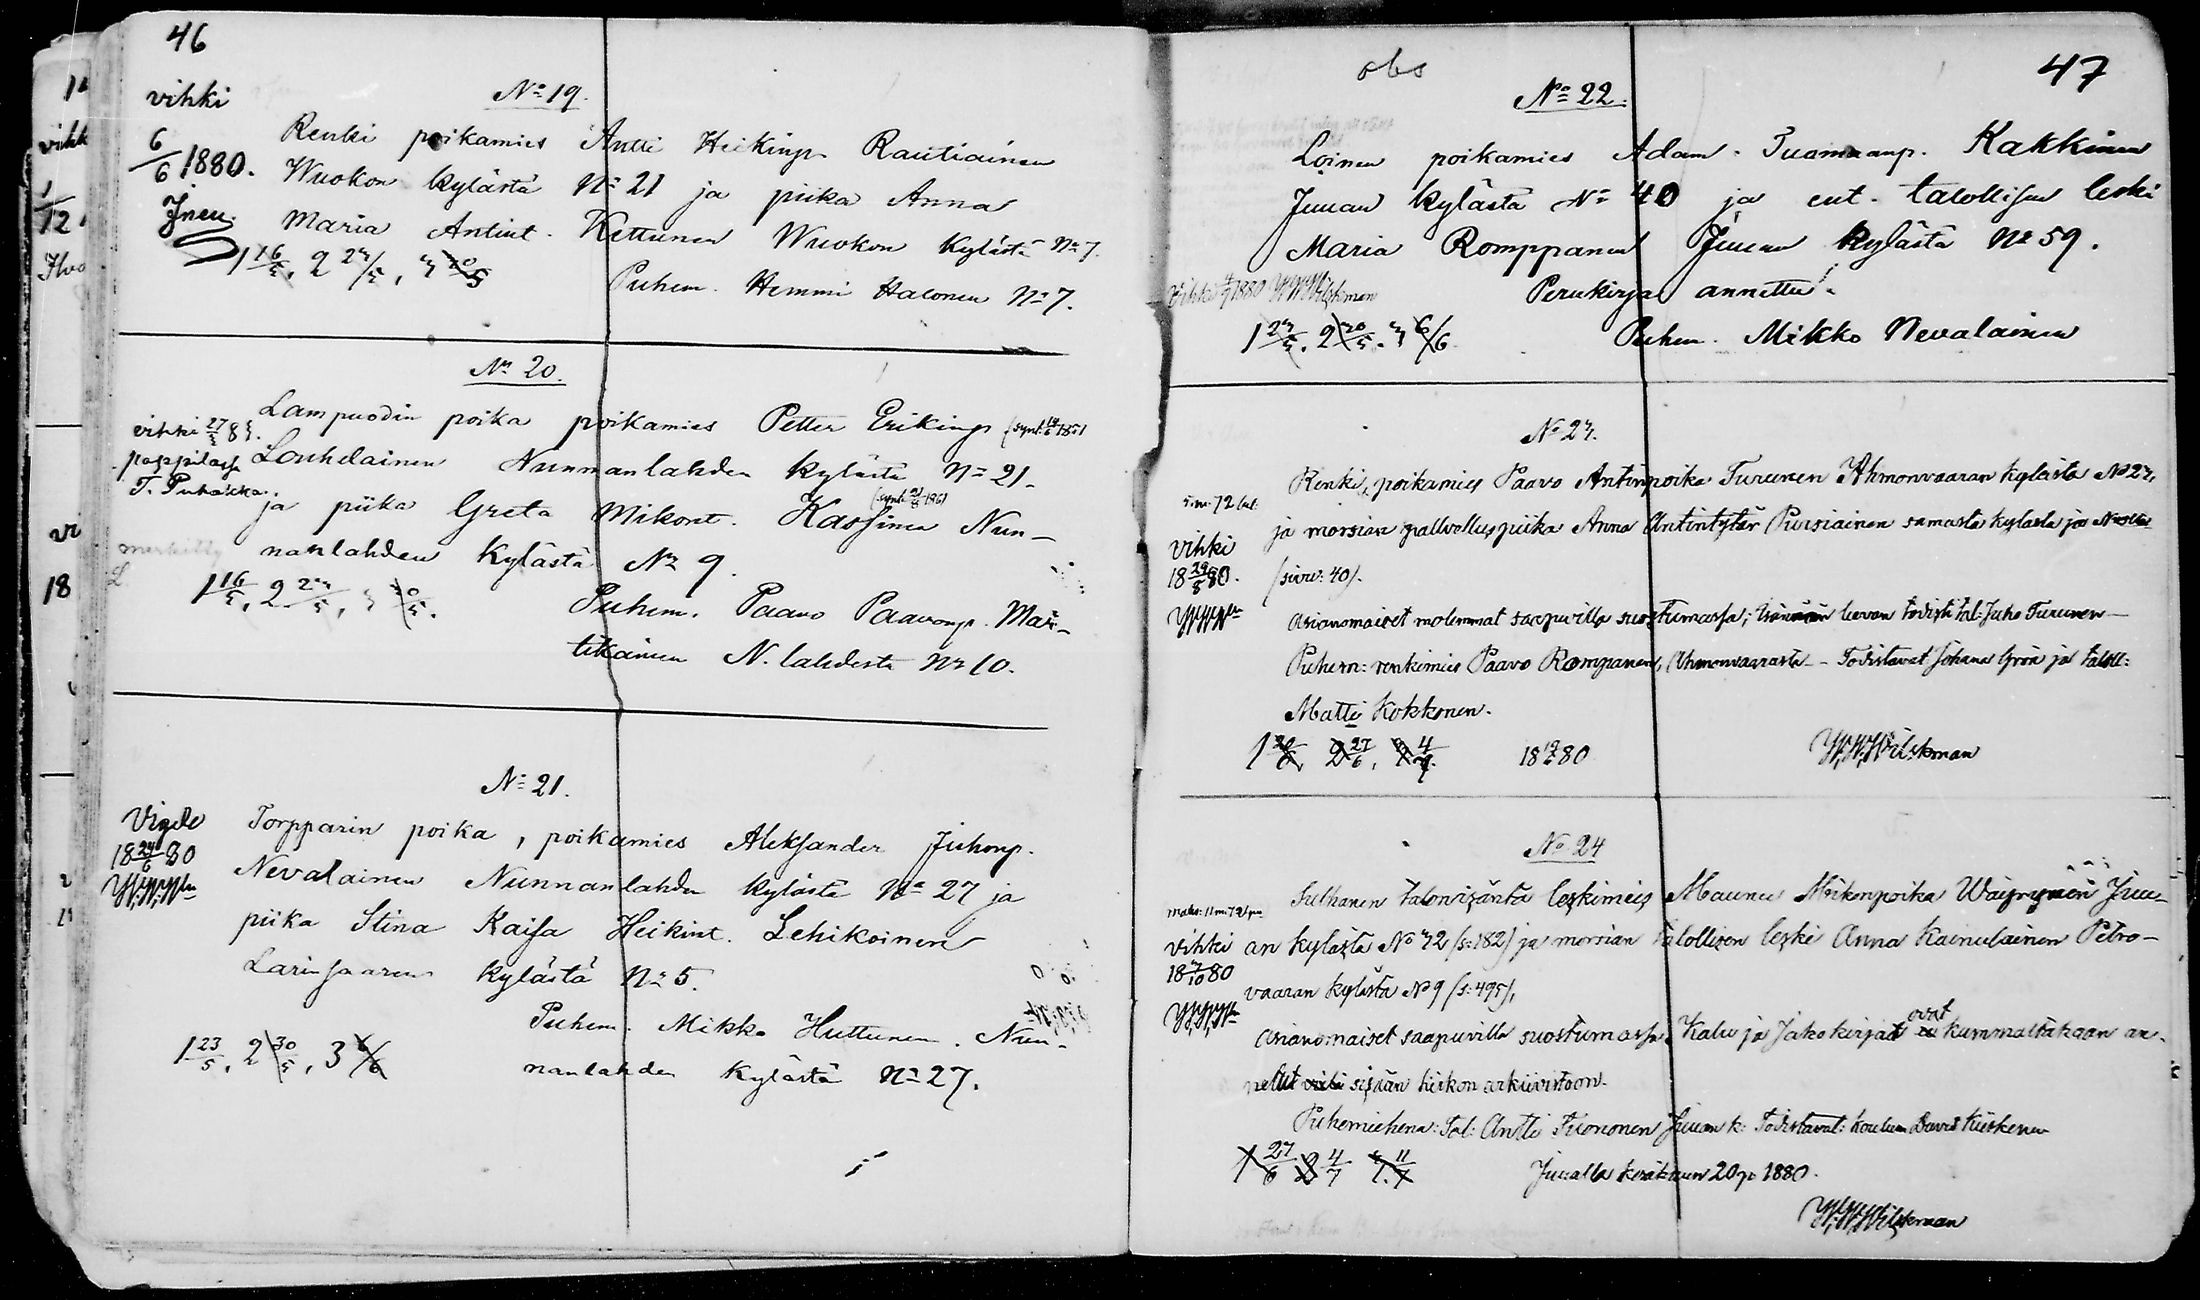 46
vihki
6/6 1880.
Jueu.
No 19.
Renki poikamies Antti Heikinp. Rautiainen
Wuokon kylästä No 21 ja piika Anna
Maria Antint. Kettunen Wuokon kylästä No 7.
1 16/5, 2 23/5, 3 30/5
Puhem. Hemmi Halonen No 7.
No 20.
vihki 27/3 81.
pappilassa
T. Puhakka.
Lampuodin poika poikamies Petter Erikinp (synt.
Louhelainen Nunnanlahden kylästä No 21.
ja piika Greta Mikont. Kassinen Nun-
merkitty nanlahden kylästä No 9.
1 16/5, 2 23/5, 3 30/5.
Puhem. Paavo Paavonp. Mar-
tikainen N. lahdesta No 10.
No 21.
Vigde
18 24/6 80
Torpparin poika, poikamies Aleksander Juhonp.
Nevalainen Nunnanlahden kylästä No 27 ja
piika Stina Kaisa Heikint. Lehikoinen
Larinsaaren kylästä No 5.
Puhem. Mikko Huttunen. Nun-
nanlahden kylästä No 27.
1 23/5, 2 30/5, 3 6/6
47
obs
No 22.
Loinen poikamies Adam Tuomaanp. Kakkinen
Juuan kylästä No 40 ja ent. talollisen leski
Maria Romppanen Juuan kylästä No 59.
Vihki 4/7 1880 W.W.Wilskman
Perukirja annettu.
1 23/5. 2 30/5. 3 6/6
Puhem. Mikko Nevalainen
No 23.
Renki, poikamies Paavo Antinpoika Turunen Ahmonvaaran kylästä No 23,
ja morsian palvelluspiika Anna Antintytär Pursiainen samasta kylasta ja
vihki
18 29/8 80.
(sivu: 40).
Asianomaiset molemmat saapuvilla suostumassa; luvan todisti tal: Juho Turunen
Puhem: renkimies Paavo Rompanen, Ahmonvaarasta - Todistavat Johana Grön ja taloll:
Matti Kokkonen.
1 20/6, 2 27/6, 3 4/7.
18 19/6 80
W.W.Wilskman
No 24
Sulhanen talonisäntä leskimies Maunu Mikonpoika Wäyrynen Juu-
an kylästä No 42 (s:182) ja morsian talollisen leski Anna Kainulainen Petro-
vaaran kylästä No 9 (s:495),
vihki
18 3/10 80
Asianomaiset saapuvilla suostumassa. Kalu ja Jakokirjat ovat kummaltakaan an-
netut sisään kirkon arkiivistoon.
Puhemiehenä: Tal: Antti Tuononen Juuan k: Todistavat: koulum David Kiiskinen
1 27/6 2 4/7 3 11/7
Juualla kesäkuun 20 p: 1880.
W.W.Wilskman